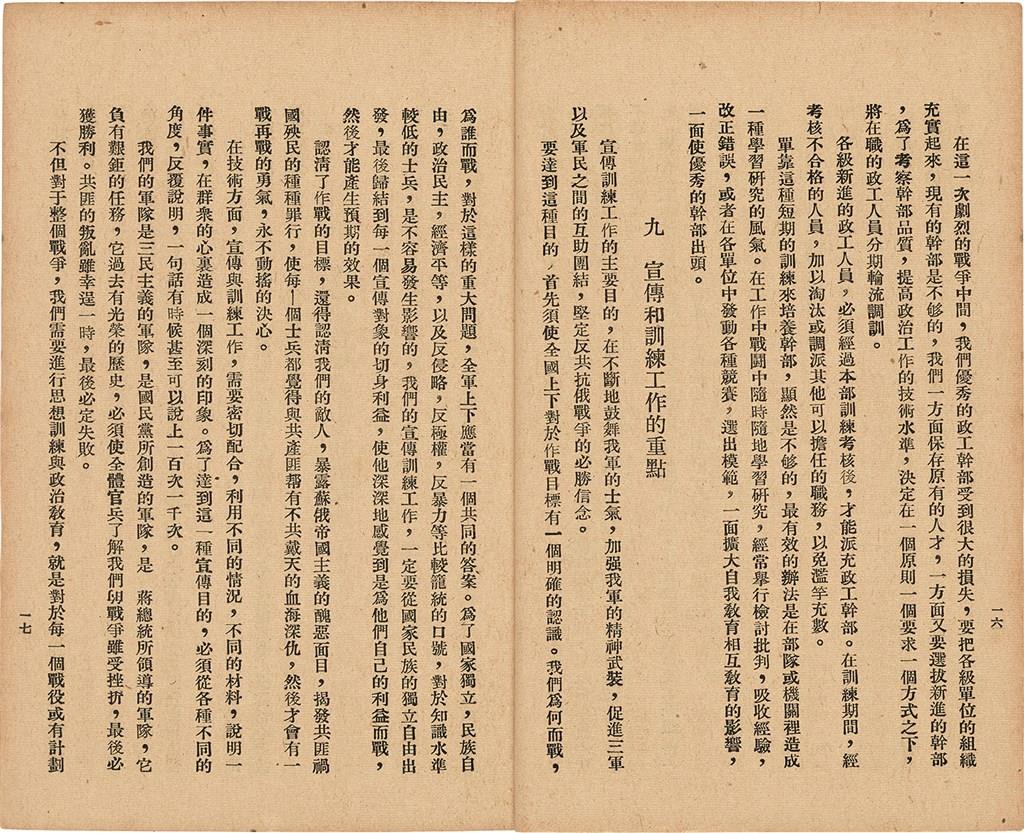 在這一次劇烈的戰爭中間，我們優秀的政工幹部受到很大的損失，要把各級單位的組織
充實起來，現有的幹部是不够的，我們一方面保存原有的人才，一方面又要選拔新進的幹部
，爲了考察幹部品質，提高政治工作的技術水準，決定在一個原則一個要求一個方式之下，
將在職的政工人員分期輪流調訓。
各級新進的政工人員，必須經過本部訓練考核後，才能派充政工幹部。在訓練期間，經
考核不合格的人員，加以淘汰或調派其他可以擔任的職務，以免濫竽充數。
單靠這種短期的訓練來培養幹部，顯然是不够的，最有效的辦法是在部隊或機關裡造成
一種學習研究的風氣。在工作中戰鬪中隨時隨地學習研究，經常舉行檢討批判，吸收經驗，
改正錯誤，或者在各單位中發動各種競賽，選出模範，一面擴大自我敎育相互敎育的影響，
一面使優秀的幹部出頭。
九　宣傳和訓練工作的重點
宣傳訓練工作的主要目的，在不斷地鼓舞我軍的士氣，加强我軍的精神武裝，促進三軍
以及軍民之間的互助團結，堅定反共抗俄戰爭的必勝信念。
要達到這種目的，首先須使全國上下對於作戰目標有一個明確的認識。我們爲何而戰，
一六
爲誰而戰，對於這樣的重大問題，全軍上下應當有一個共同的答案。爲了國家獨立，民族自
由，政治民主，經濟平等，以及反侵略，反極權，反暴力等比較籠統的口號，對於知識水準
較低的士兵，是不容易發生影響的，我們的宣傳訓練工作，一定要從國家民族的獨立自由出
發，最後歸結到每一個宣傳對象的切身利益　使他深深地感覺到是爲他們自己的利益而戰，
然後才能產生預期的效果。
認淸了作戰的目標，還得認淸我們的敵人，暴露蘇俄帝國主義的醜惡面目，揭發共匪禍
國殃民的種種罪行，使每一個士兵都覺得與共產匪幫有不共戴天的血海深仇，然後才會有一
戰再戰的勇氣，永不動搖的決心。
在技術方面，宣傳與訓練工作，需要密切配合，利用不同的情況，不同的材料，說明一
件事實，在群衆的心裏造成一個深刻的印象。爲了達到這一種宣傳目的，必須從各種不同的
角度，反覆說明，一句話有時候甚至可以說上一百次一千次。
我們的軍隊是三民主義的軍隊，是國民黨所創造的軍隊，是　蔣總統所領導的軍隊，它
負有艱鉅的任務，它過去有光榮的歷史，必須使全體官兵了解我們戰爭雖受挫折，最後必
獲勝利。共匪的叛亂雖幸逞一時，最後必定失敗。
不但對于整個戰爭，我們需要進行思想訓練與政治敎育，就是對於每一個戰役或有計劃
一七